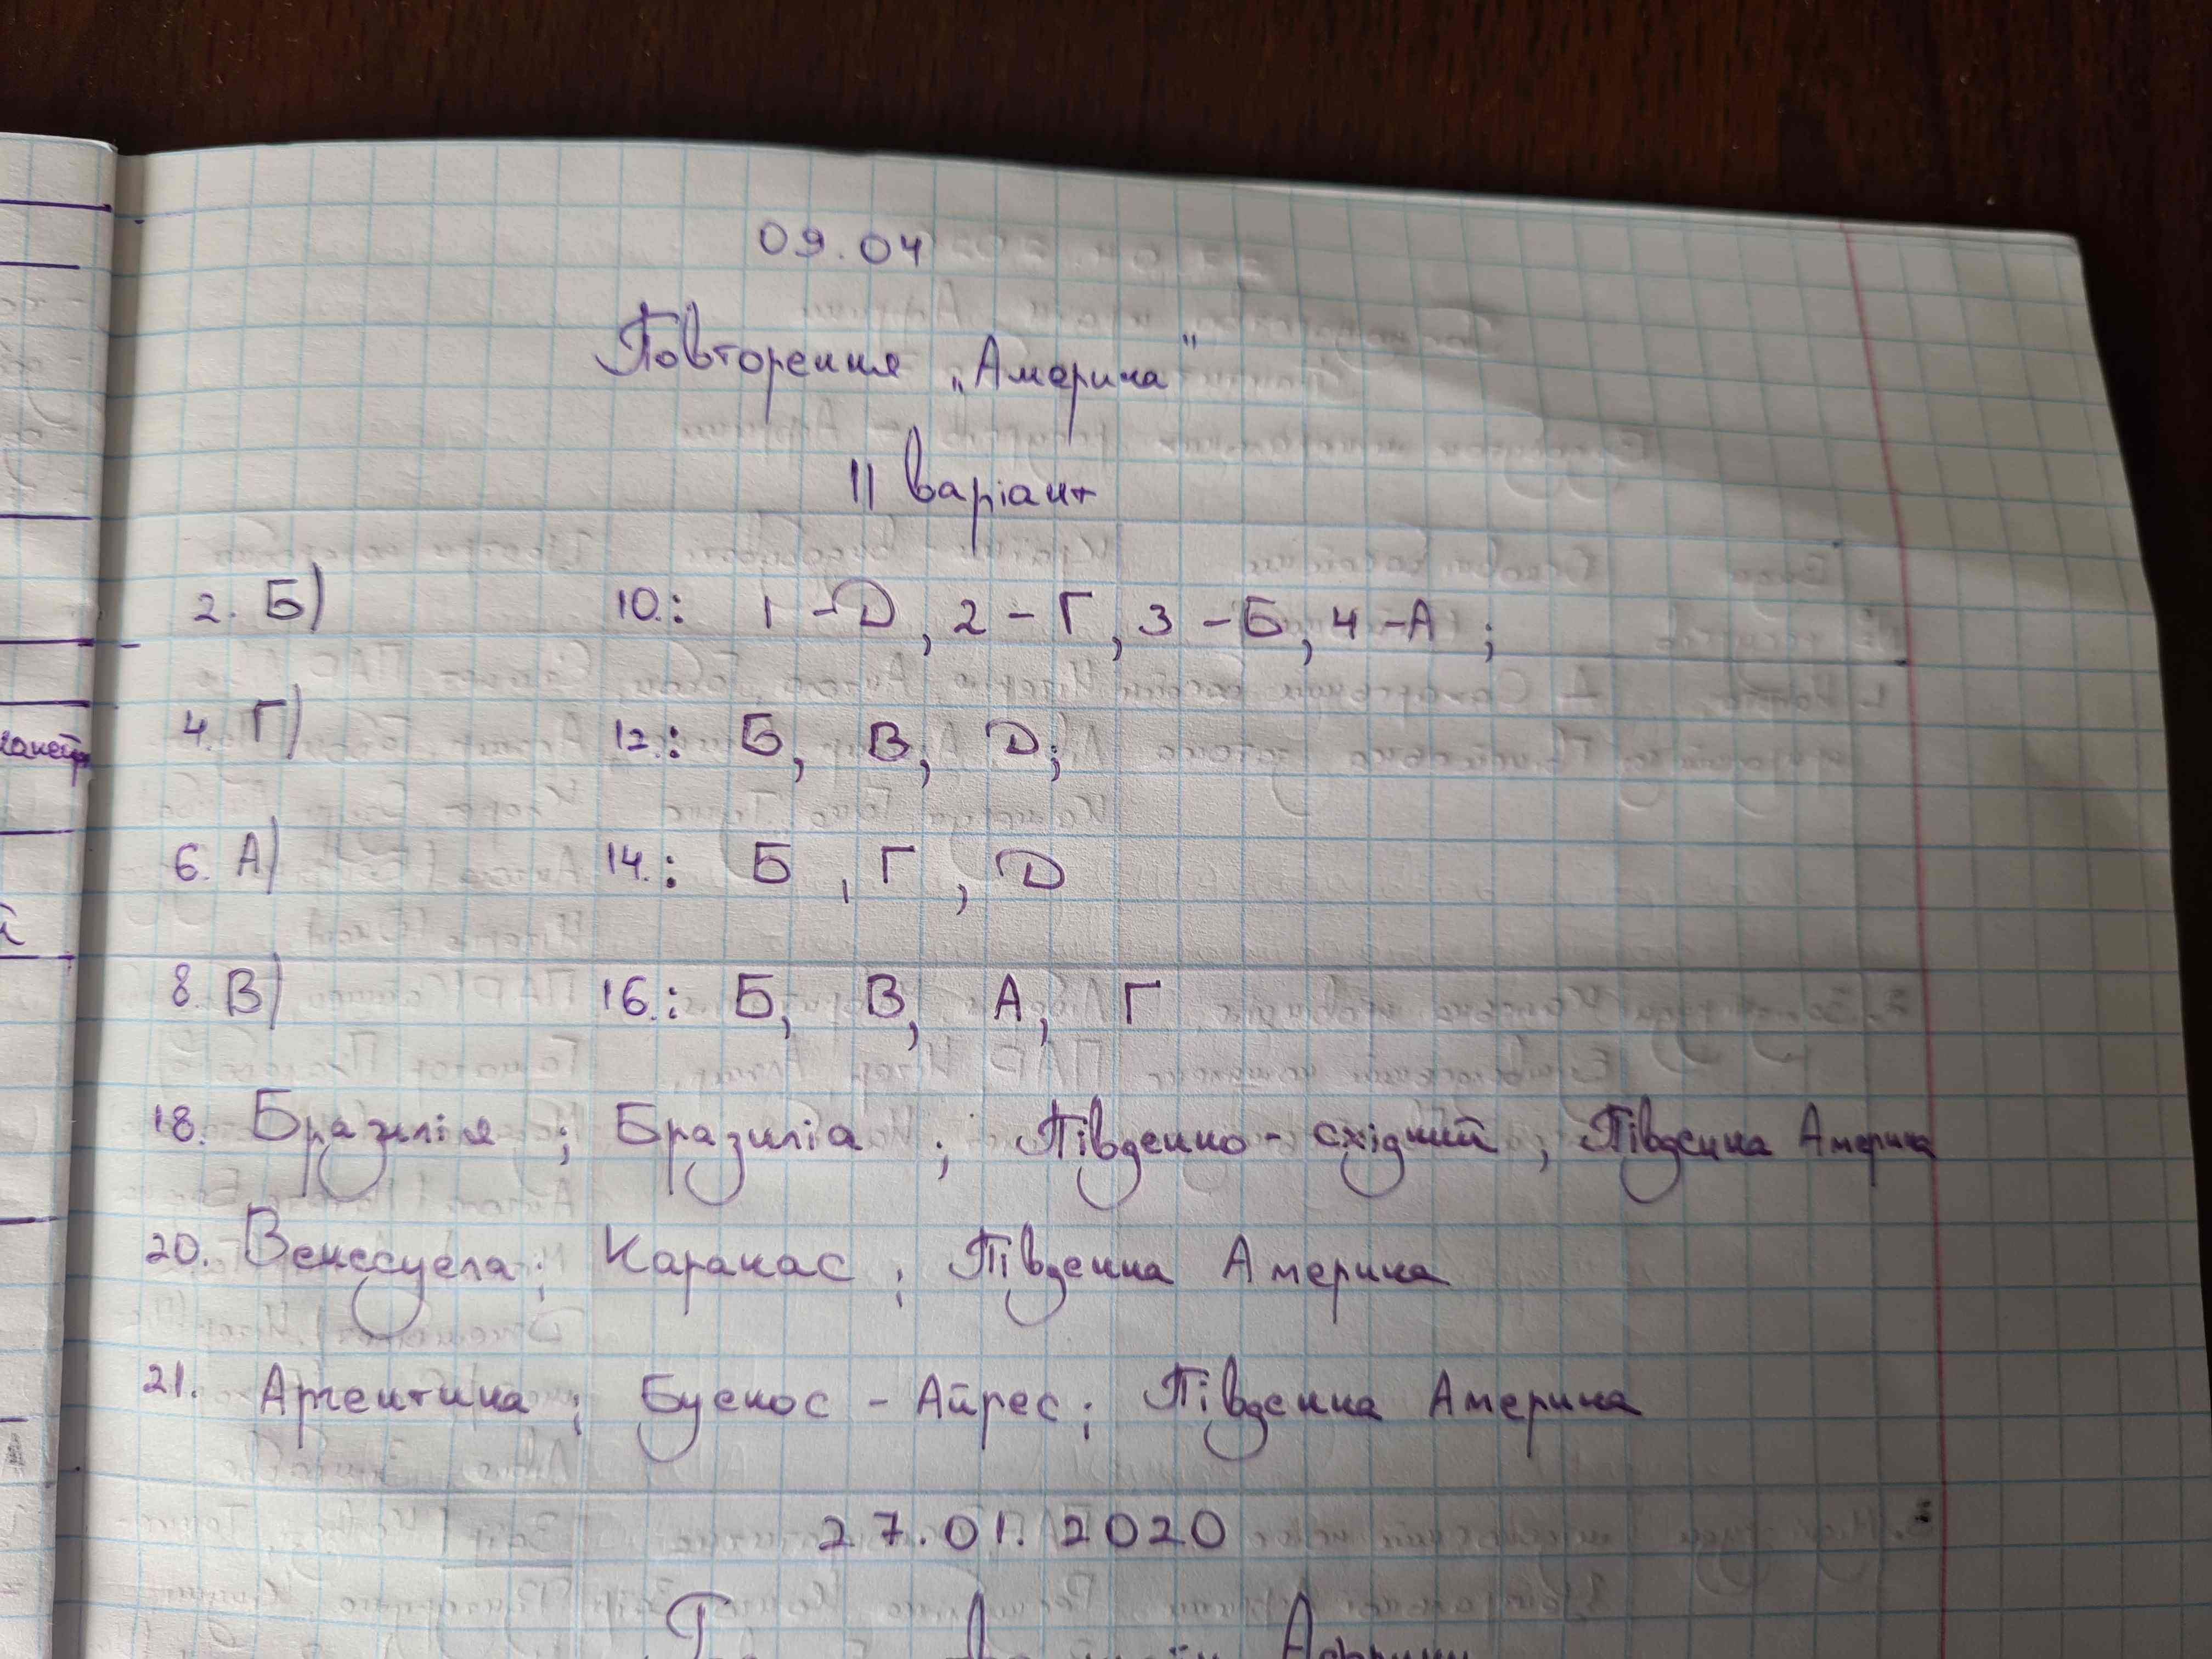 09.04
Повторення „Америка"
II варіант
2. Б) 10.: 1 - D, 2 - Г, 3 - Б, 4 - А;
4. Г) 12.: Б, В, D;
6. А) 14.: Б, Г, D
8. В) 16.: Б, В, А, Г
18. Бразилія; Бразиліа; Південно - східний; Південна Америка
20. Венесуела; Каракас; Південна Америка
21. Аргентина; Буенос - Айрес; Південна Америка
27.01.2020